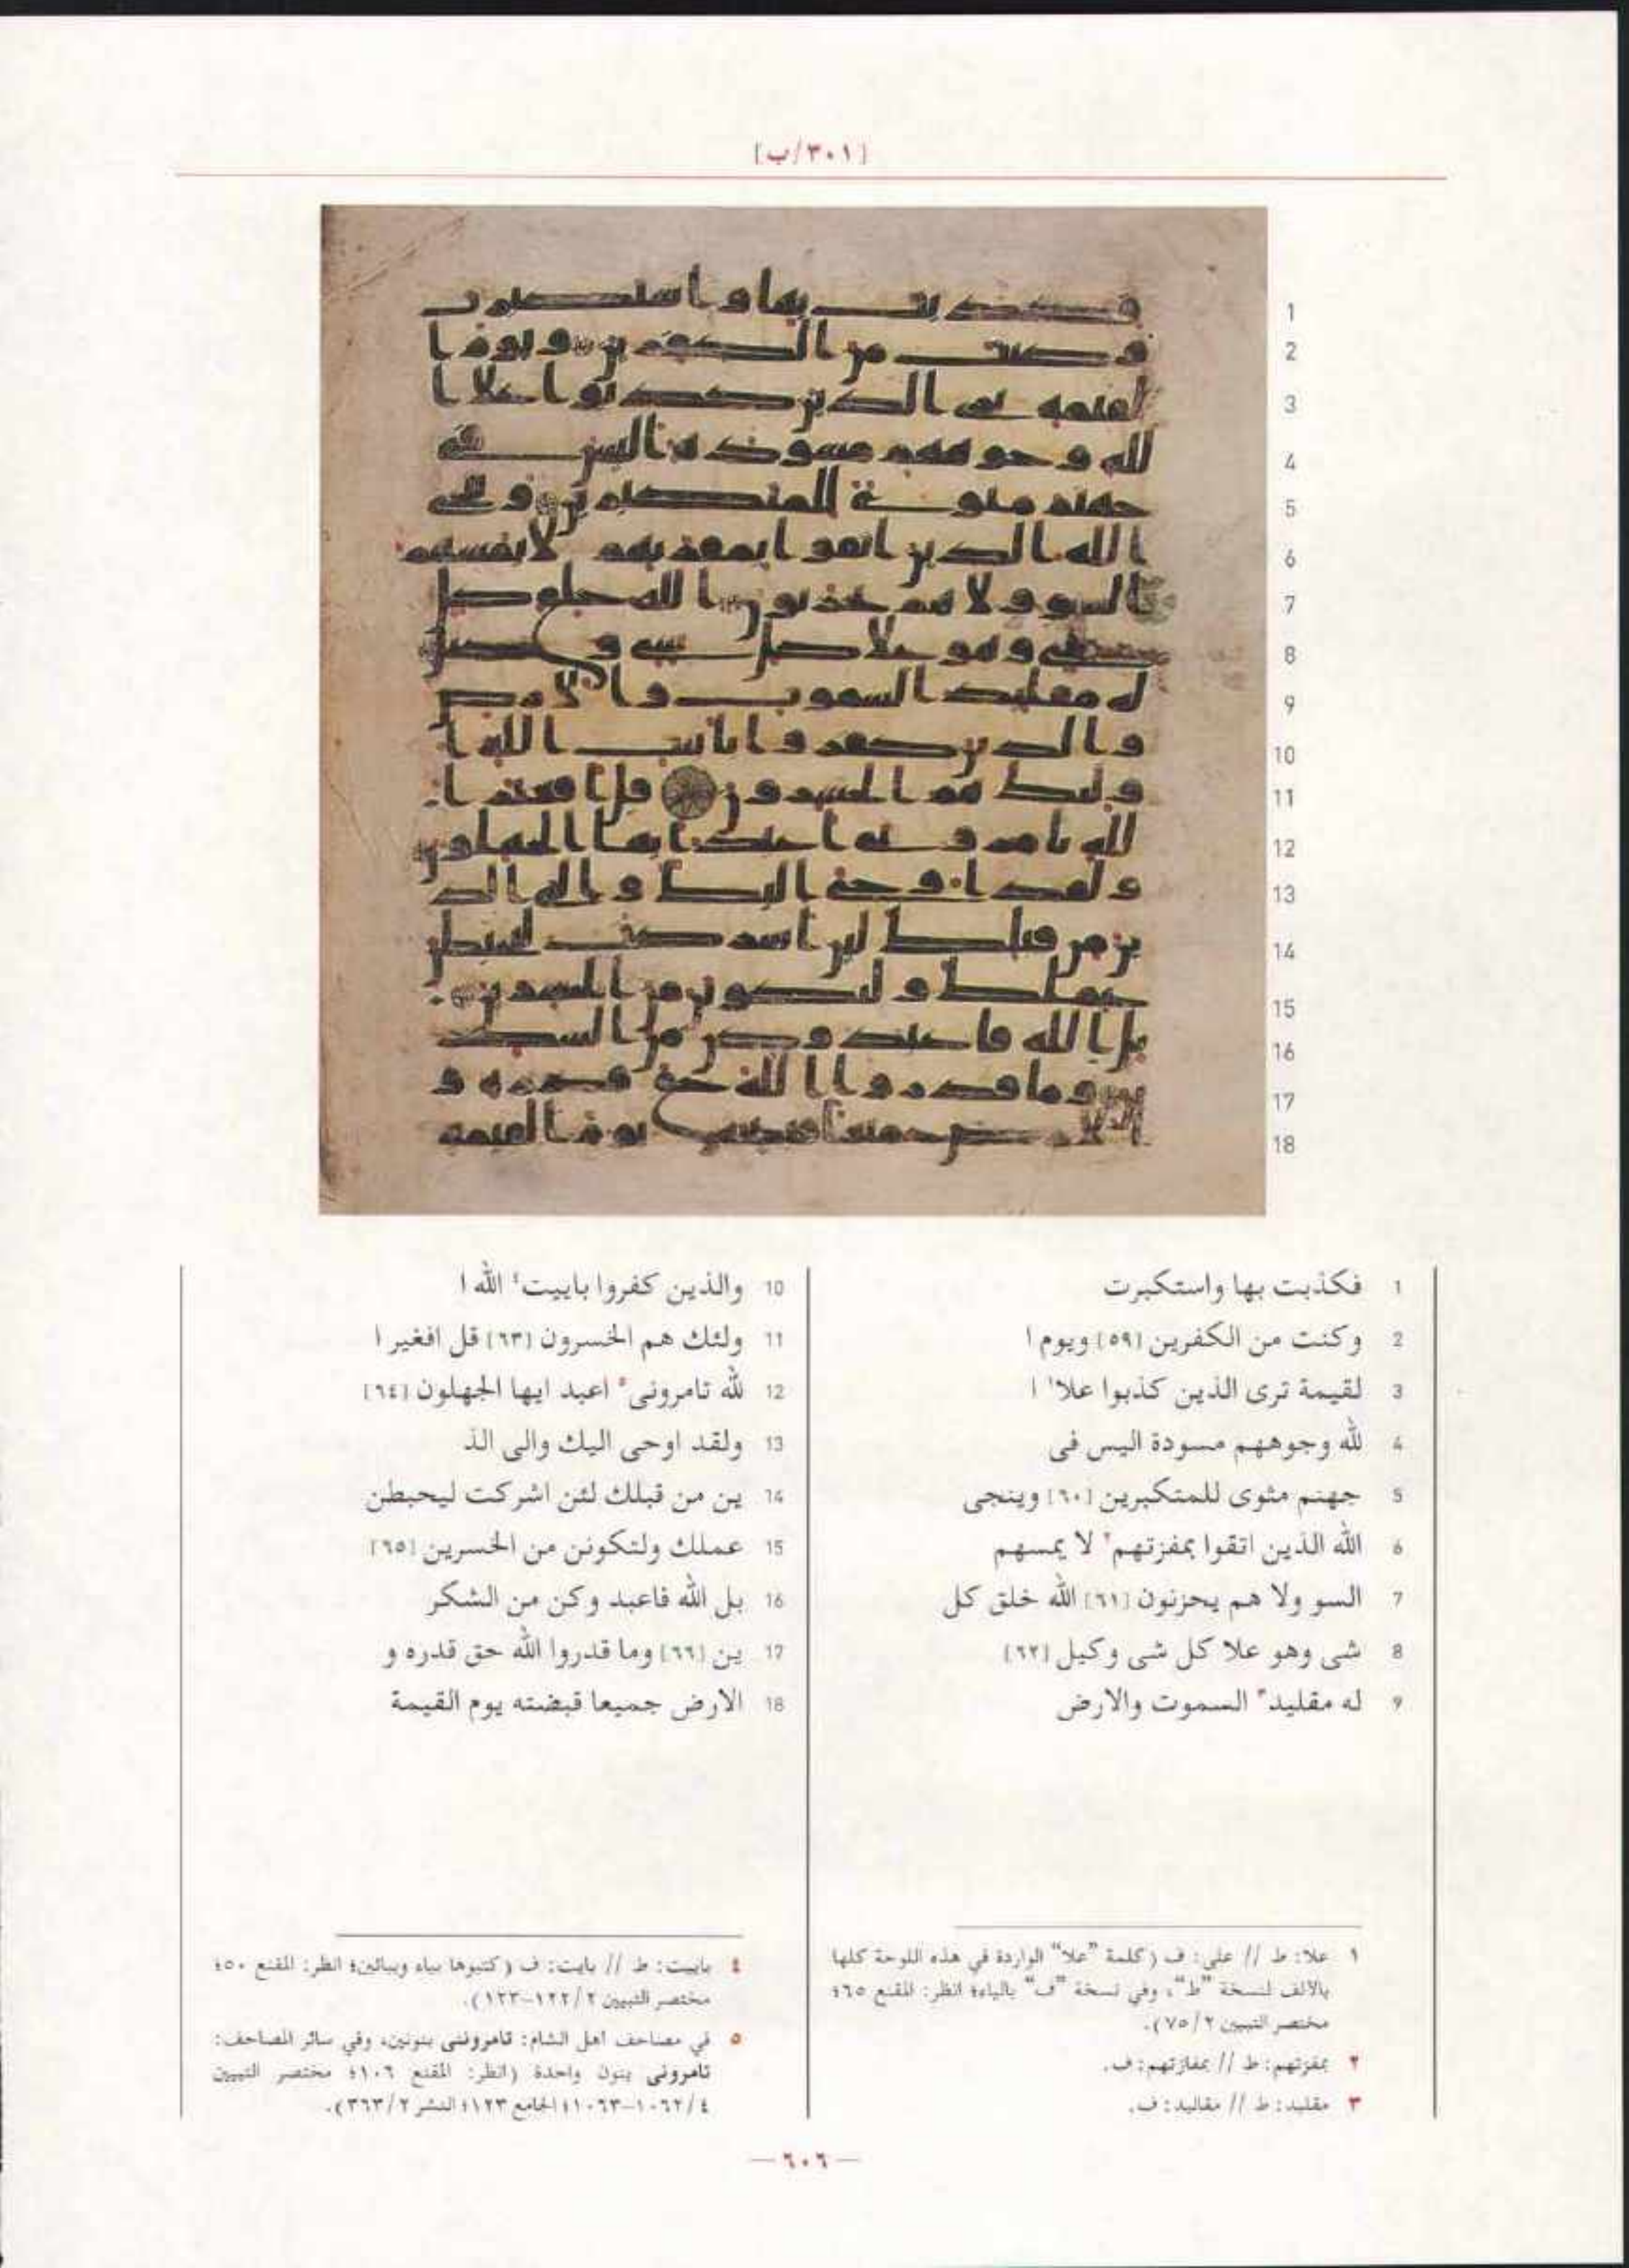 [٣٠١/ب]
1 فكذبت بها واستكبرت
2 وكنت من الكفرين [٥٩] ويوم ا
3 لقيمة ترى الذين كذبوا علا١ ا
4 لله وجوههم مسودة اليس فى
5 جهنم مثوى للمتكبرين [٦٠] وينجى
6 الله الذين اتقوا بمفزتهم٢ لا يمسهم
7 السو ولا هم يحزنون [٦١] الله خلق كل
8 شى وهو علا كل شى وكيل [٦٢]
9 له مقليد٣ السموت والارض
10 والذين كفروا باييت٤ الله ا
11 ولئك هم الخسرون [٦٣] قل افغير ا
12 لله تامرونى٥ اعبد ايها الجهلون [٦٤]
13 ولقد اوحى اليك والى الذ
14 ين من قبلك لئن اشركت ليحبطن
15 عملك ولتكونن من الخسرين [٦٥]
16 بل الله فاعبد وكن من الشكر
17 ين [٦٦] وما قدروا الله حق قدره و
18 الارض جميعا قبضته يوم القيمة
١ علا: ط // على: ف (كلمة "علا" الواردة في هذه اللوحة كلها
بالالف لنسخة "ط"، وفي نسخة "ف" بالياء؛ انظر: المقنع ٦٥؛
مختصر التبيين ٧٥/٢).
٢ بمفزتهم: ط // بمفازتهم: ف.
٣ مقليد: ط // مقاليد: ف.
٤ باييت: ط // بايت: ف (كتبوها بياء وبيائين؛ انظر: المقنع ٥٠؛
مختصر التبيين ١٢٢/٢-١٢٣).
٥ في مصاحف اهل الشام: تامروننى بنونين، وفي سائر المصاحف:
تامرونى بنون واحدة (انظر: المقنع ١٠٦؛ مختصر التبيين
١٠٦٢/٤-١٠٦٣؛ الجامع ١٢٣؛ النشر ٣٦٣/٢).
— ٦٠٦ —